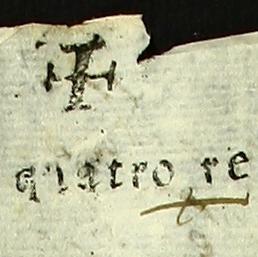 quatro re